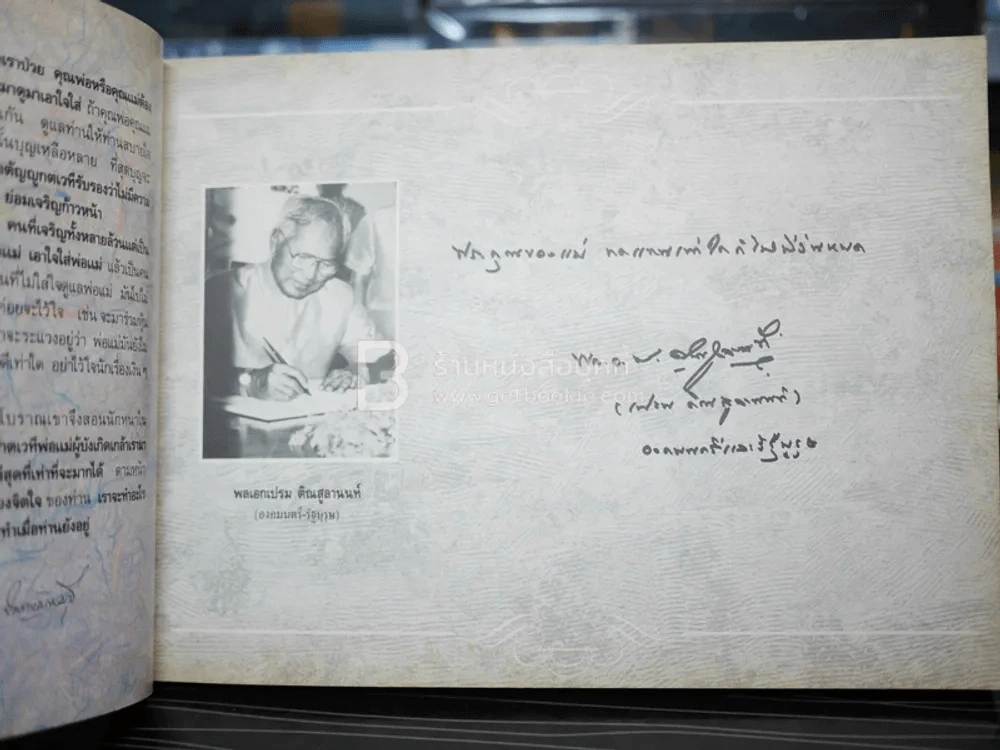 เราป่วย คุณพ่อหรือคุณแม่ต้อง
มาดูมาเอาใจใส่ ถ้าคุณพ่อคุณแม่
กัน ดูแลท่านให้ท่านสบายใจ
นบุญเหลือหลาย ที่สุดบุญจะ
ตัญญูกตเวทีรับรองว่าไม่มีความ
ย่อมเจริญก้าวหน้า
คนที่เจริญทั้งหลายล้วนแต่เป็น
แม่ เอาใจใส่พ่อแม่ แล้วเป็นคน
นที่ไม่ใส่ใจดูแลพ่อแม่ มันไปไม่
ค่อยจะไว้ใจ เช่น จะมาร่วมหุ้น
าจะระแวงอยู่ว่า พ่อแม่มันยังไม่
ดีเท่าใด อย่าไว้ใจนักเรื่องเงินๆ
โบราณเขาจึงสอนนักหนาใน
ตเวทีพ่อแม่ผู้บังเกิดเกล้าเรามา
สุดที่เท่าที่จะมากได้ ตามหน้า
งจิตใจ ของท่าน เราจะทำอะไร
ทำเมื่อท่านยังอยู่
พระคุณของแม่
(เปรม ติณสูลานนท์)
องคมนตรีและรัฐบุรุษ
พลเอกเปรม ติณสูลานนท์
(องคมนตรี-รัฐบุรุษ)
B ร้านหนังสือบุ๊คดี
www.getbookie.com